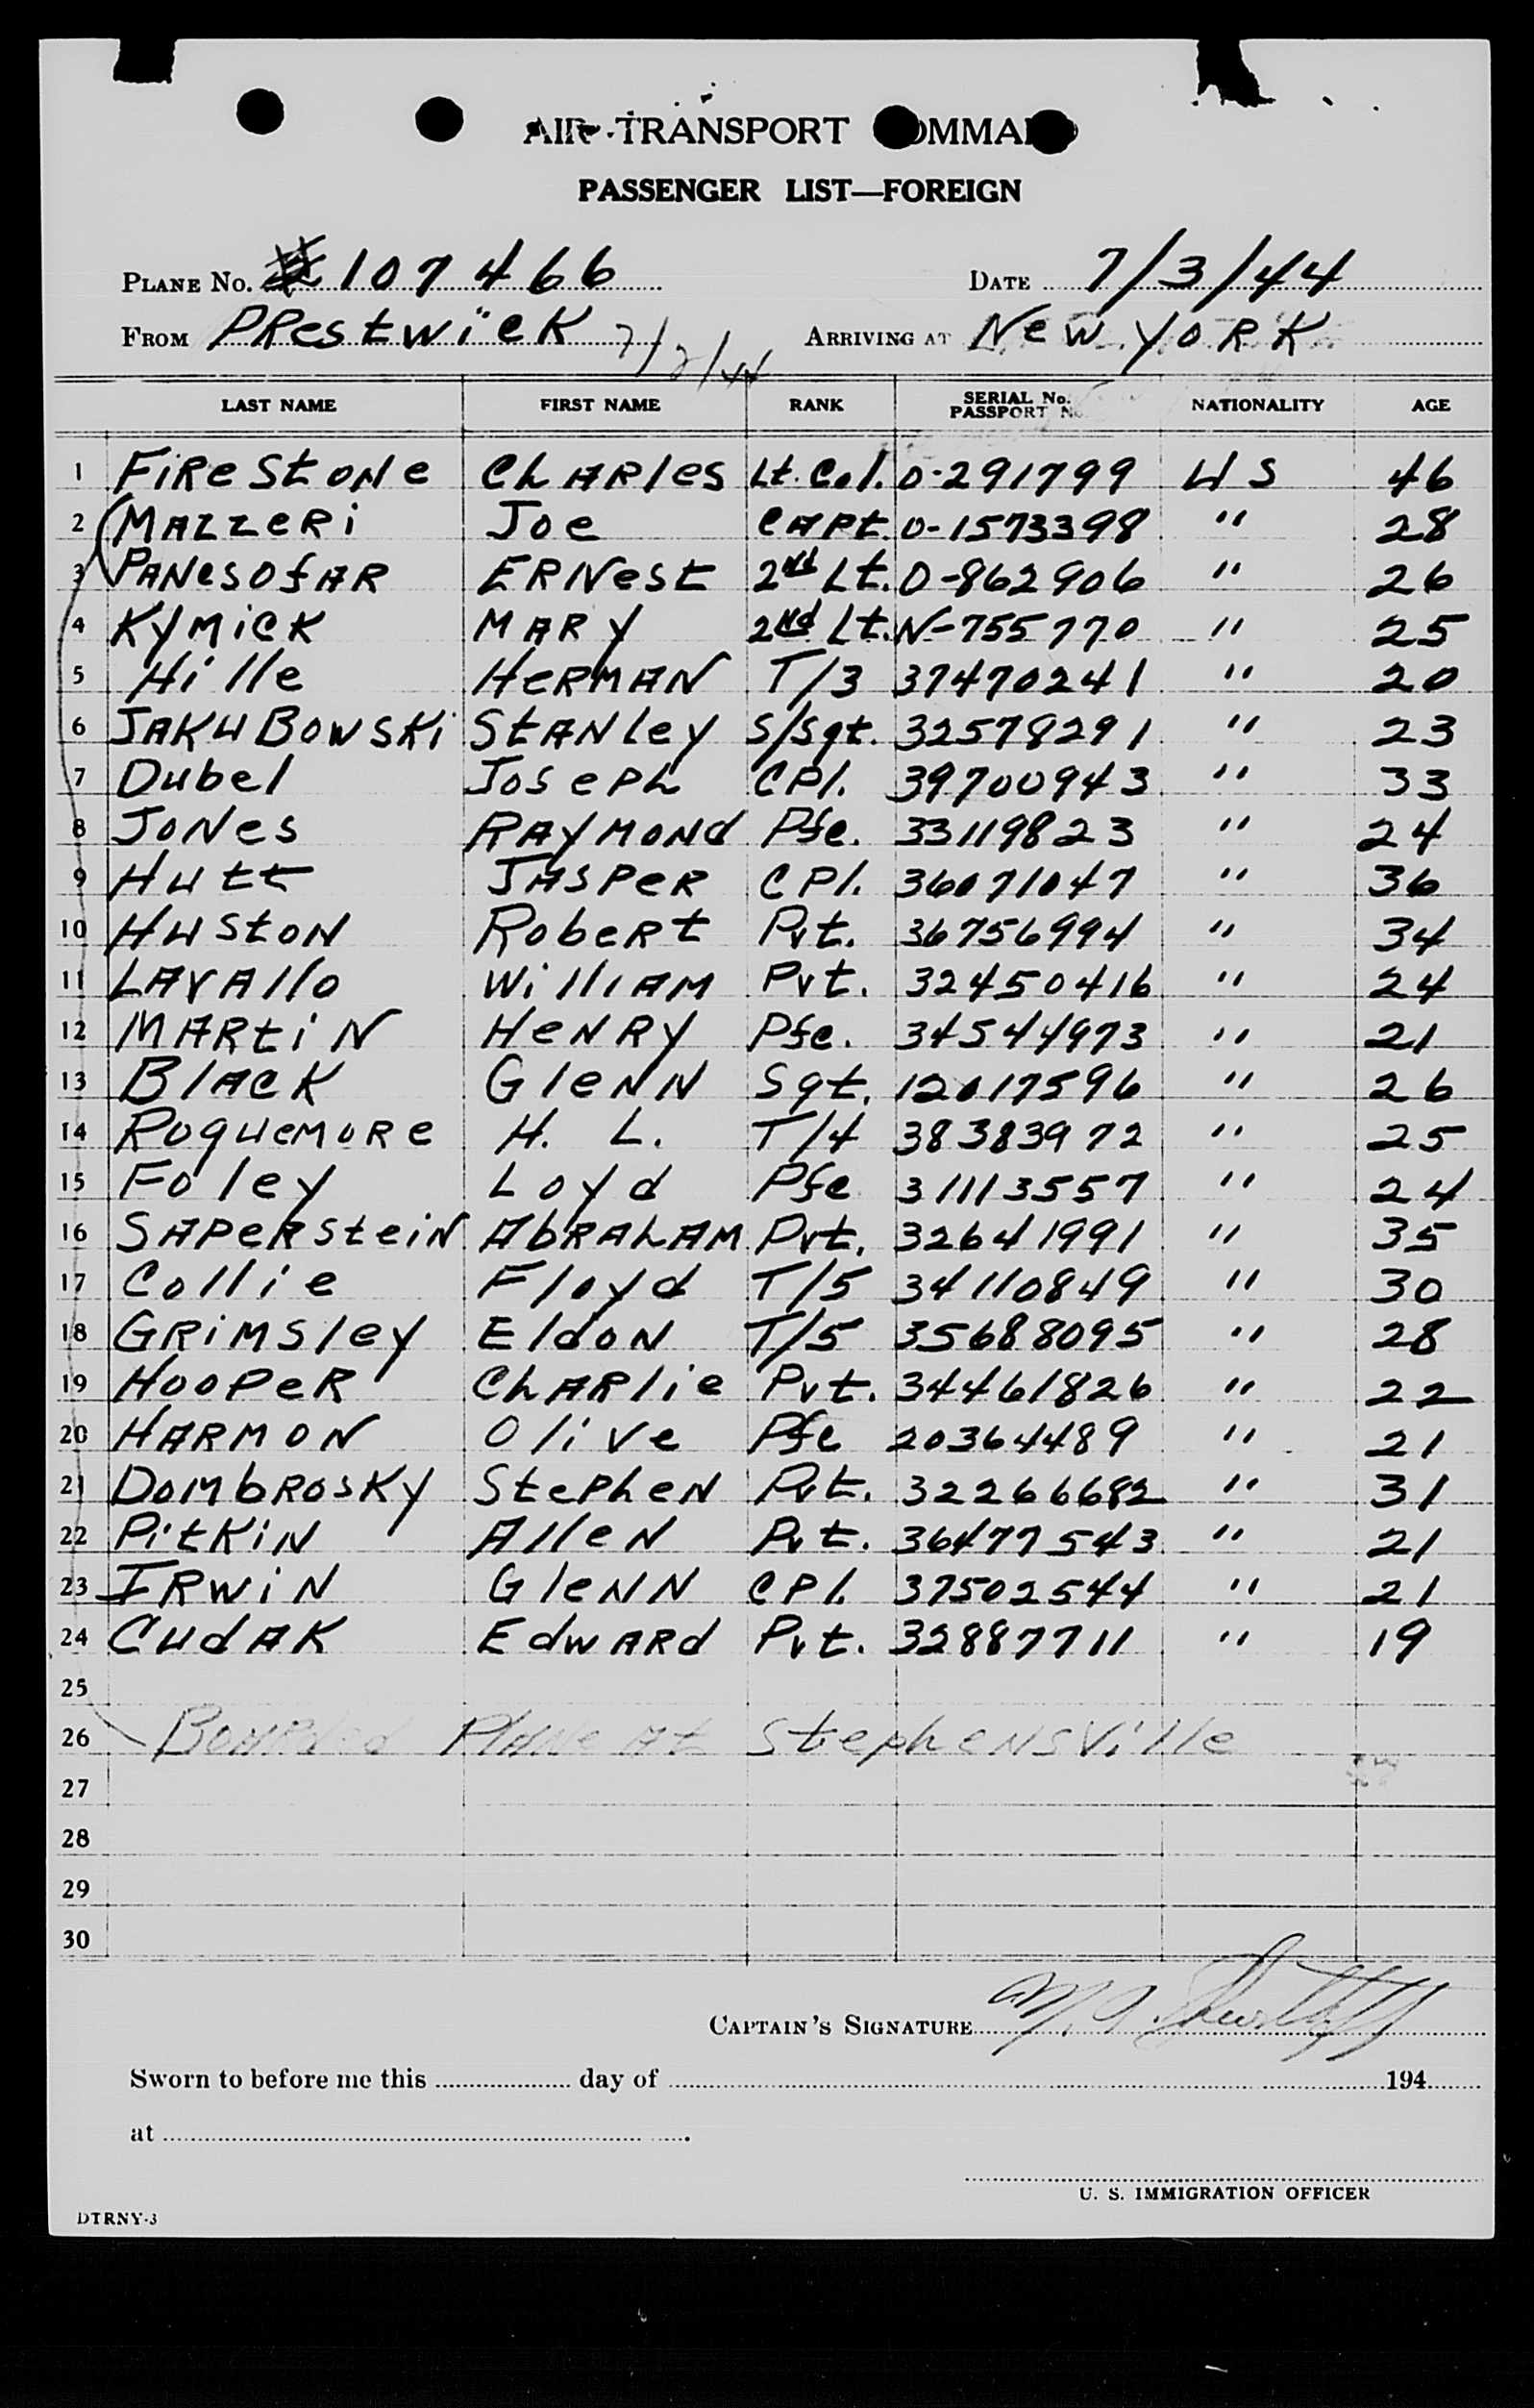 AIR TRANSPORT COMMAND
PASSENGER LIST—FOREIGN
PLANE No. 107466 DATE 7/3/44
FROM PRestwick 7/2/44 ARRIVING AT New YORK
LAST NAME FIRST NAME RANK SERIAL No. PASSPORT No. NATIONALITY AGE
1 FiRestoNe ChARles Lt. Col. O-291799 US 46
2 MAzzeRi Joe CAPt. O-1573398 " 28
3 PANesofAR ERNest 2nd Lt. O-862906 " 26
4 KyMicK MARy 2Nd Lt. N-755770 " 25
5 Hille HeRMAN T/3 37470241 " 20
6 JAKUBowsKi StANley S/Sgt. 32578291 " 23
7 Dubel JosePh CPl. 39700943 " 33
8 JoNes RAyMoNd Pfc. 33119823 " 24
9 Hutt JAsPeR CPl. 36071047 " 36
10 HUstoN RobeRt Pvt. 36756994 " 34
11 LAVAllo WilliAM Pvt. 32450416 " 24
12 MARtiN HeNRy Pfc. 34544973 " 21
13 BlAcK GleNN Sgt. 12017596 " 26
14 RoqueMoRe H. L. T/4 38383972 " 25
15 Foley Loyd Pfc 31113557 " 24
16 SAPeRsteiN AbRAhAM Pvt. 32641991 " 35
17 Collie Floyd T/5 34110849 " 30
18 GRiMsley EldoN T/5 35688095 " 28
19 HooPeR ChARlie Pvt. 34461826 " 22
20 HARMoN Olive Pfc 20364489 " 21
21 DoMbRosKy StePheN Pvt. 32266682 " 31
22 PitKiN AlleN Pvt. 36477543 " 21
23 IRwiN GleNN CPl. 37502544 " 21
24 CudAK EdwARd Pvt. 32887711 " 19
25
26 BoARded PlANe At StepheNsville
27
28
29
30
CAPTAIN'S SIGNATURE
Sworn to before me this day of 194
at
U. S. IMMIGRATION OFFICER
DTRNY-3